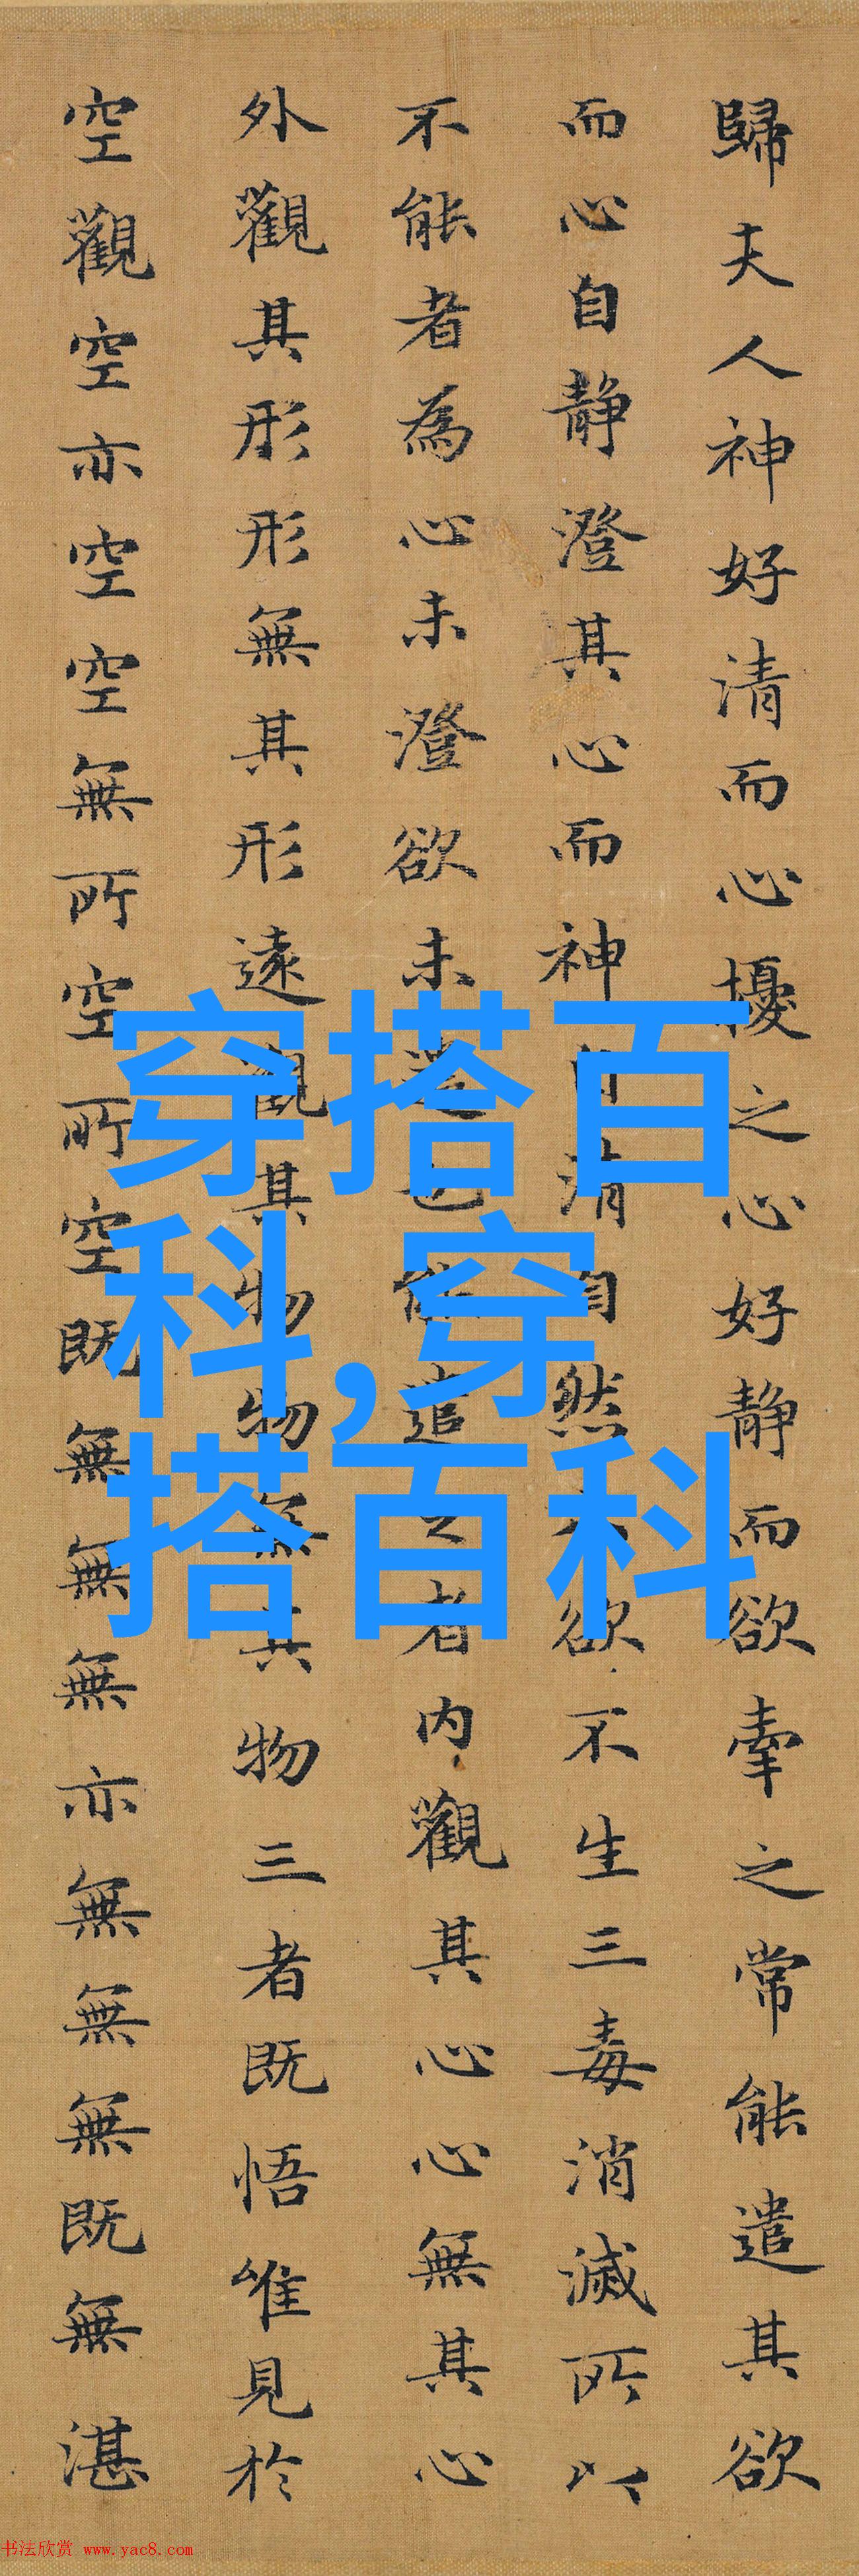 歸夫人神好清而心擾之心好静而欲牽之常能遣其欲
而心自静澄其心而神自清自然欲不生三毒消滅所以
不能者為心未澄欲未遣也能遣之者内觀其心心無其心
外觀其形形無其形遠觀其物物無其物三者既悟唯見於
空觀空亦空空無所空所空既無無無亦無無無既無湛
穿搭百
科,穿
搭百科
书法欣赏 www.yac8.com